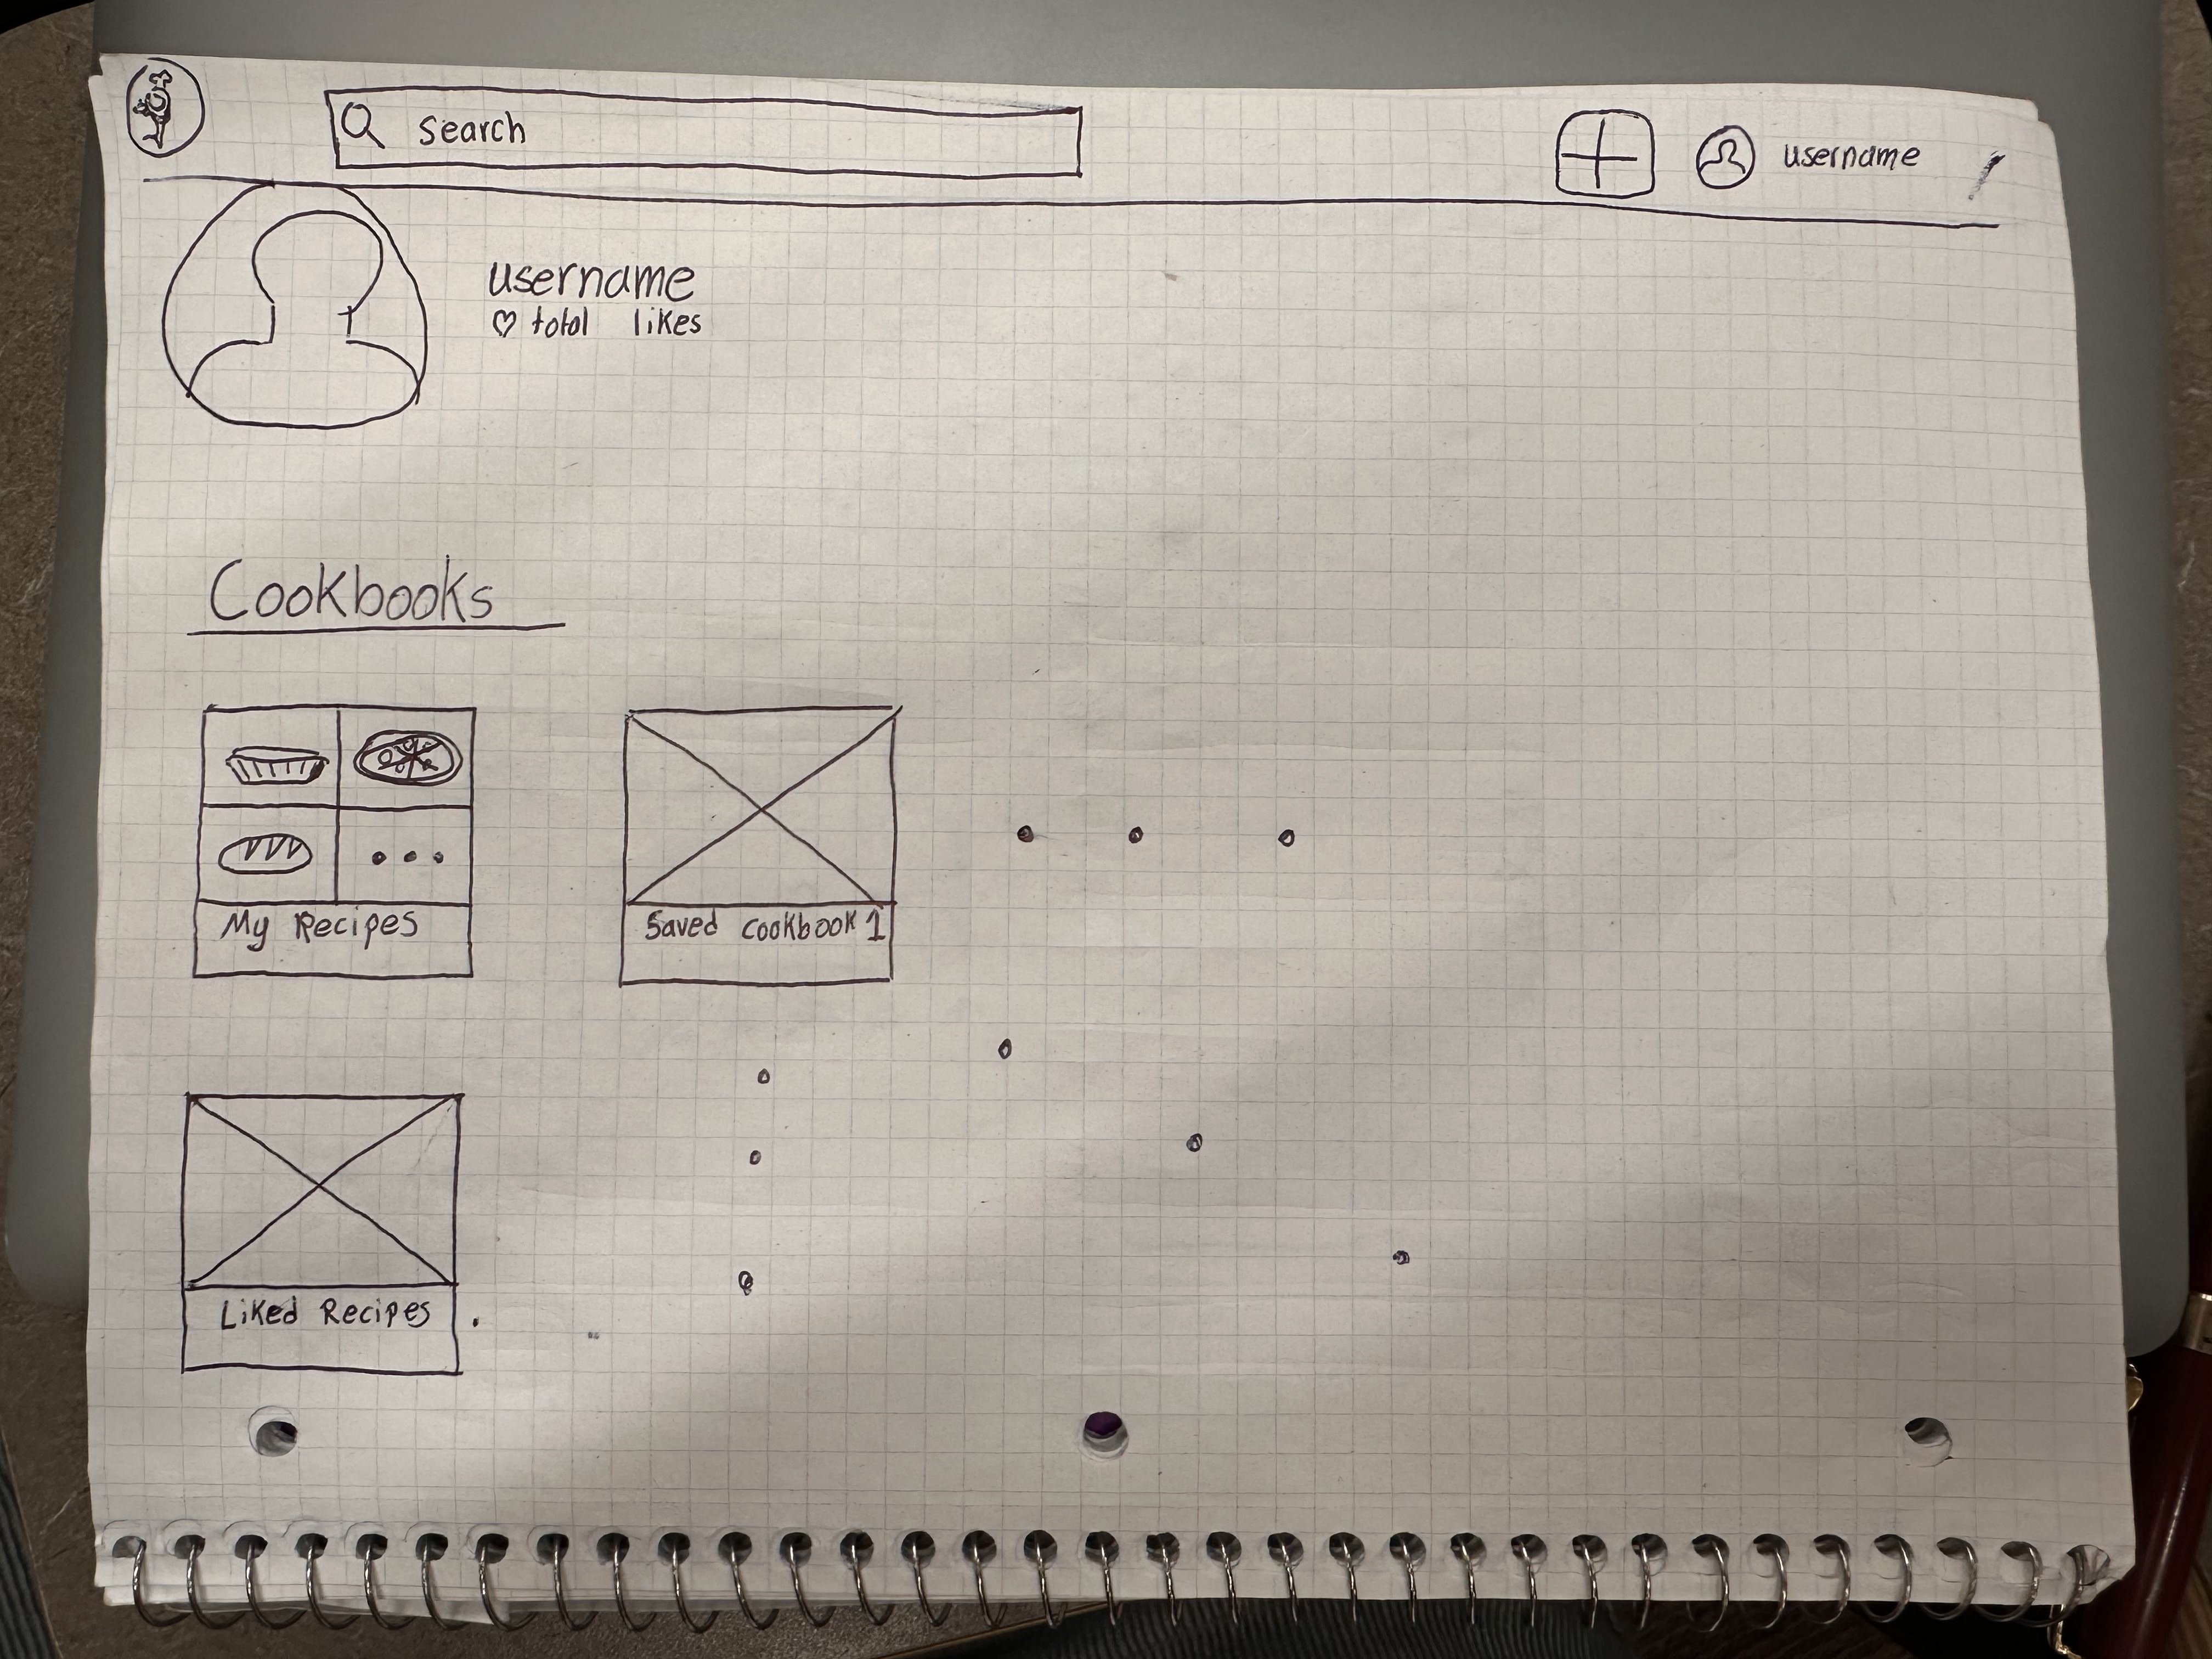 Search
username
username
♡ total likes
Cookbooks
My Recipes
Saved Cookbook 1
Liked Recipes